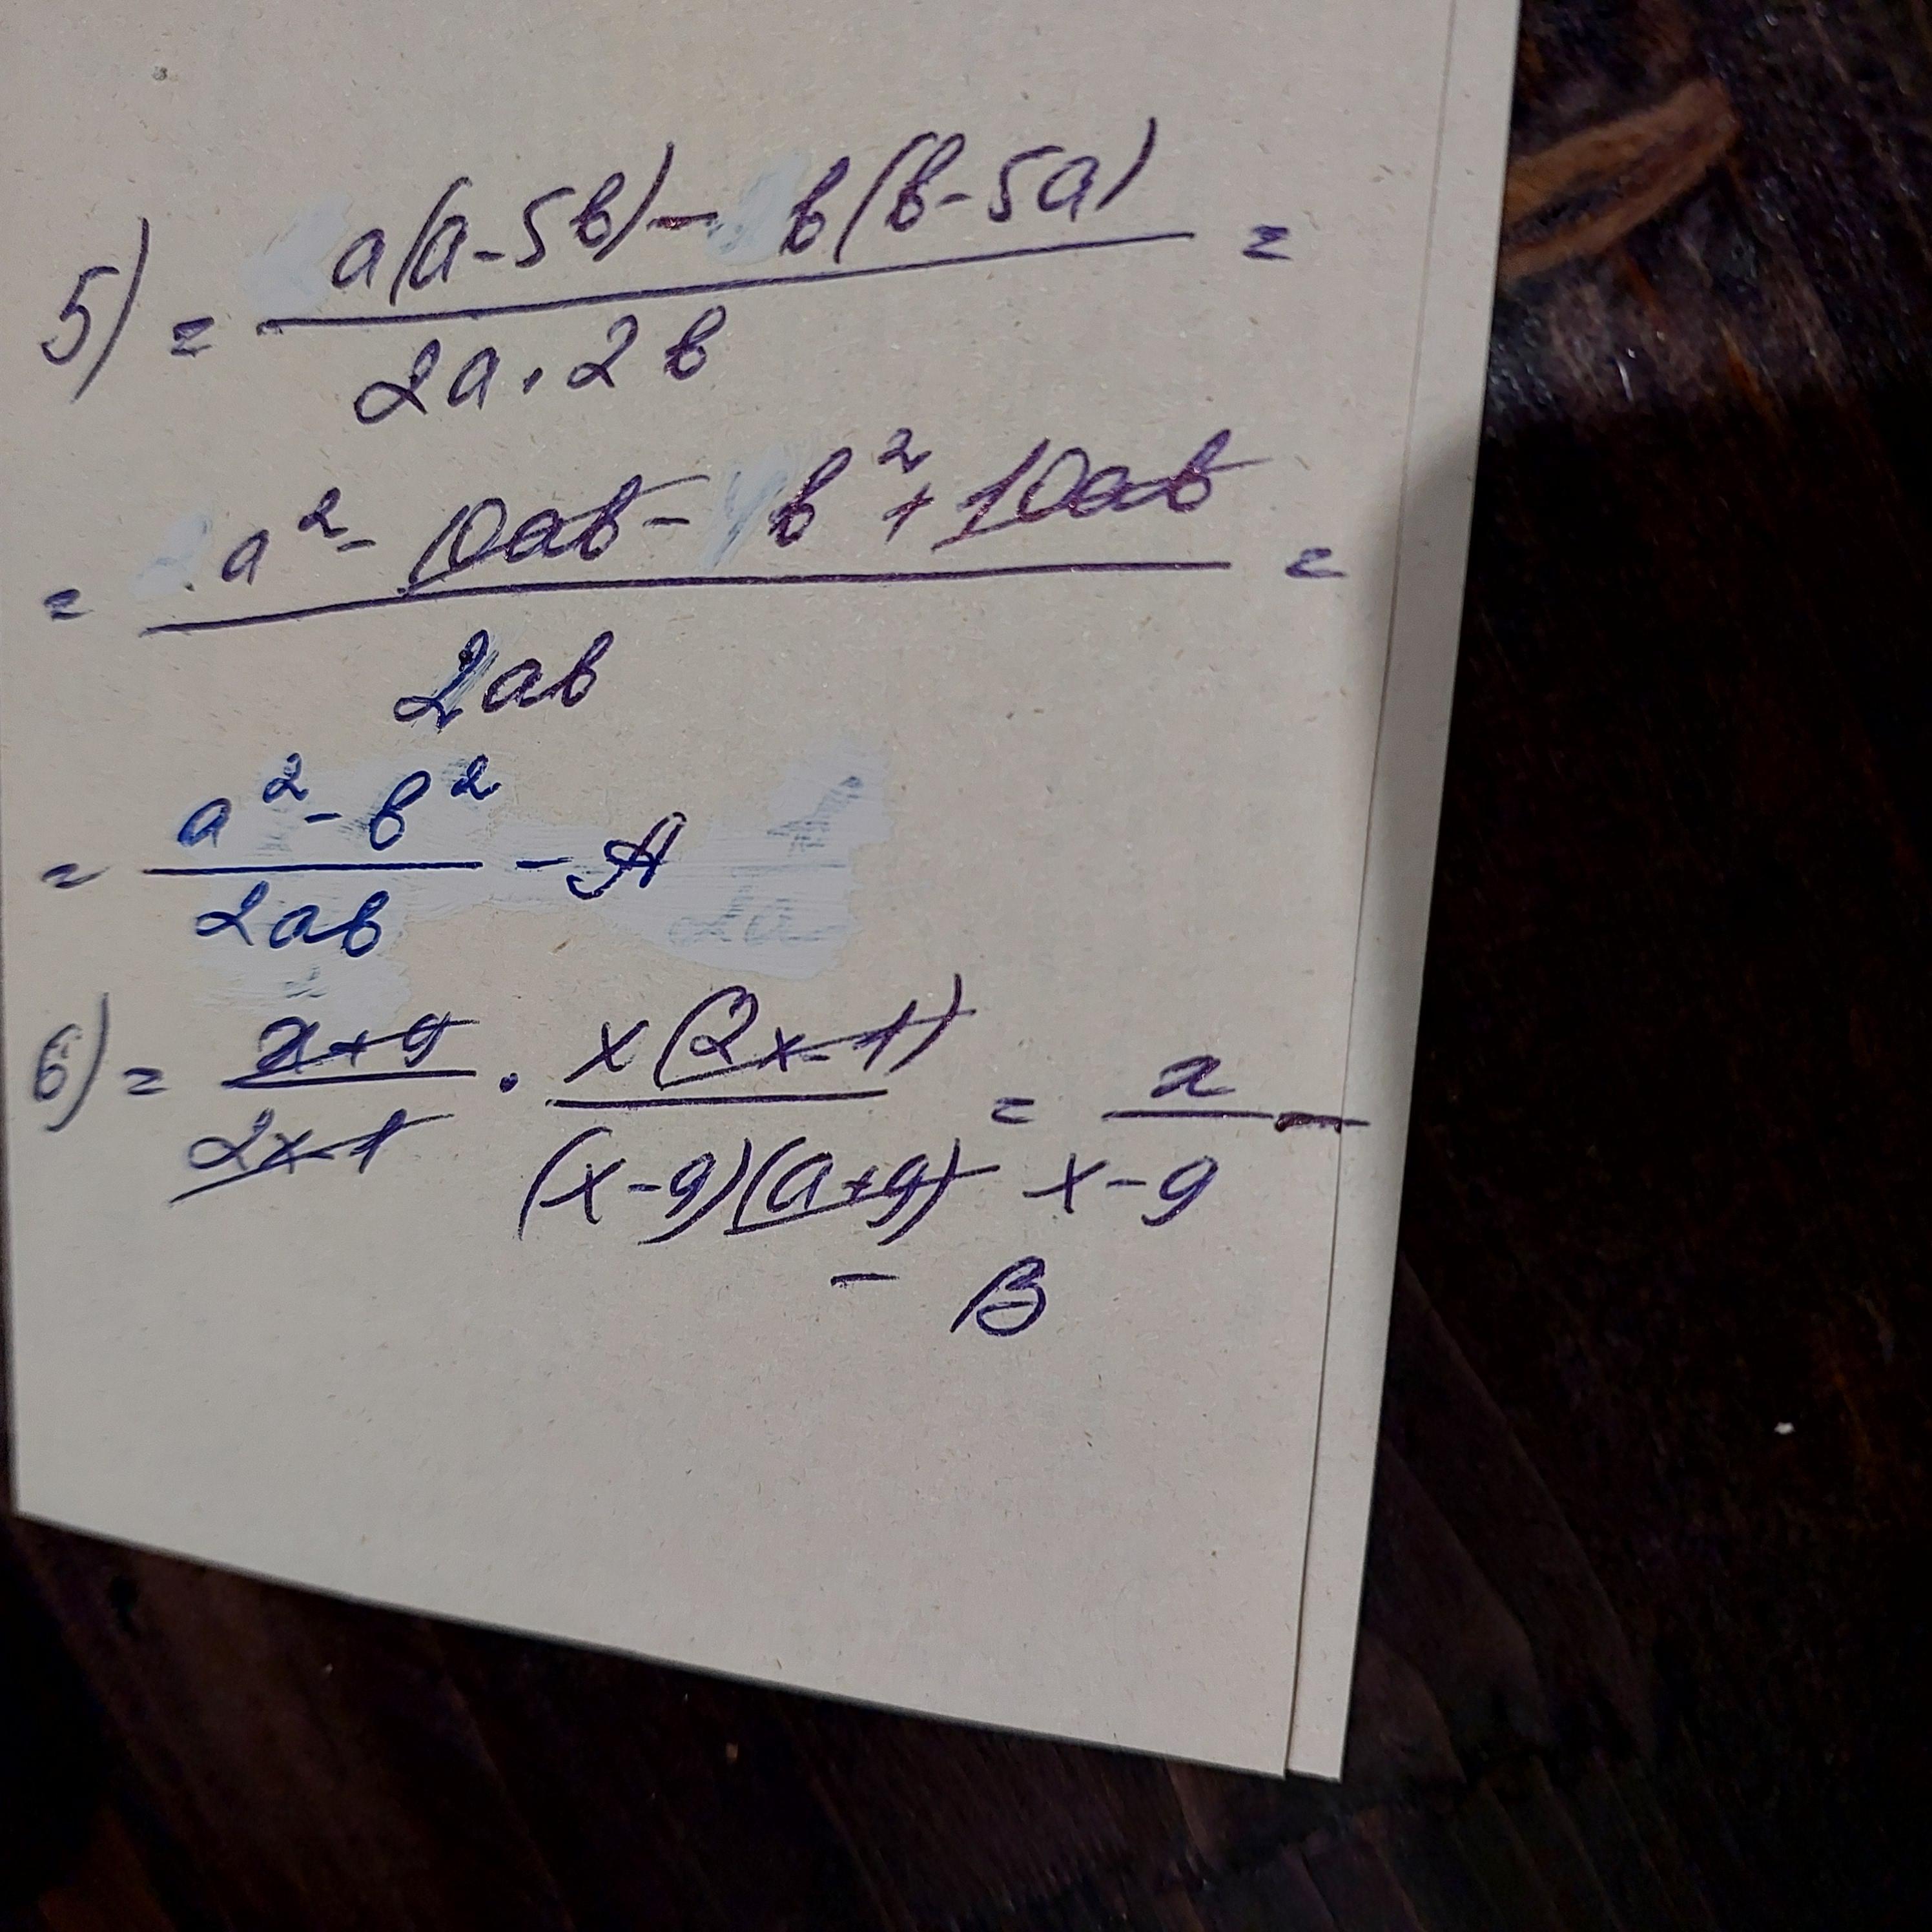 5) = a(a-5b) - b(b-5a) =
2a · 2b
= a² - 10ab - b² + 10ab =
2ab
= a² - b² - A
2ab
6) = x+9 · x(2x-1) = x
2x-1 (x-9)(a+9) x-9
- B